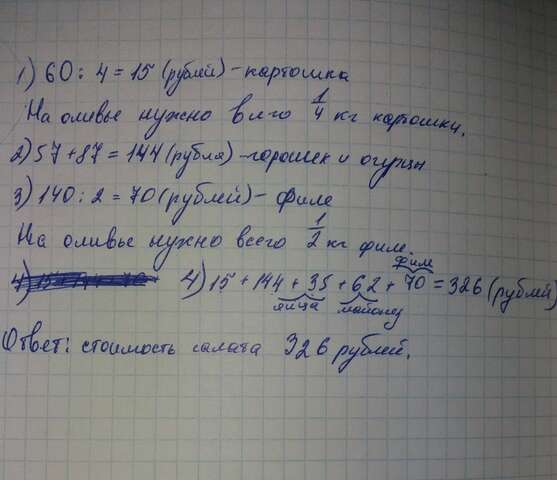 1) 60 : 4 = 15 (рублей) – картошка
На оливье нужно всго 1/4 кг картошки.
2) 57 + 87 = 144 (рубля) – горошек и огурцы
3) 140 : 2 = 70 (рублей) – филе
На оливье нужно всего 1/2 кг филе.
филе
4) 15 + 144 + 35 + 62 + 70 = 326 (рублей)
яйца майонез
Ответ: стоимость салата 326 рублей.